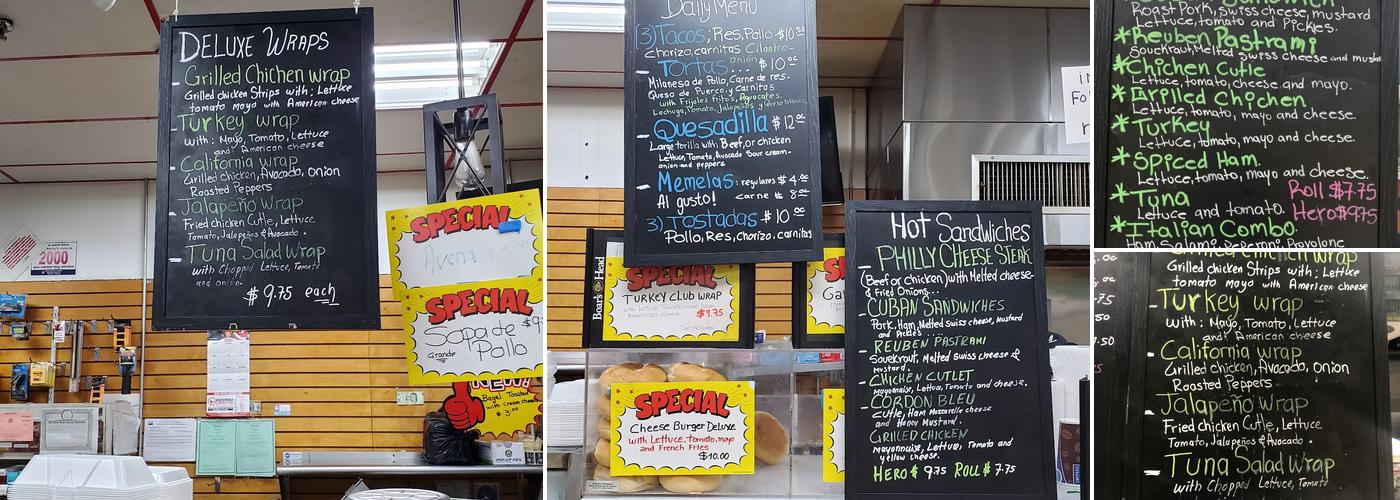 DELUXE WRAPS
- Grilled Chichen wrap
Grilled chicken Strips with; Lettuce
tomato mayo with American cheese
- Turkey wrap
with: Mayo, Tomato, Lettuce
and American cheese
- California wrap
Grilled chicken, Avocado, onion
Roasted Peppers
- Jalapeño wrap
Fried chicken Cutle, Lettuce
Tomato, Jalapeños & Avocado.
- Tuna Salad Wrap
with Chopped Lettuce, Tomato
and onion.
$9.75 each
2000
SPECIAL
Avena
SPECIAL
Sopa de $9
Grande Pollo
NEW!
Bagel Toasted
with cream cheese
$3.00
Daily Menu
(3) Tacos; Res, Pollo $10.50
chorizo, carnitas Cilantro-
onion
- Tortas... $10.00
Milanesa de Pollo, Carne de res-
Queso de Puerco, y carnitas
with Frijoles fritos, Aguacates.
Lechuga, Tomato, Jalapeños y queso blanco.
- Quesadilla $12.00
Large tortilla with Beef, or chicken
Lettuce, Tomato, Avocado Sour cream-
onion and peppers
- Memelas: regulares $4.00
Al gusto! carne $8.00
3) Tostadas $10.00
Pollo, Res, chorizo, carnitas
Boar's Head
SPECIAL
TURKEY CLUB WRAP
with Lettuce, tomato, mayo Bacon
American cheese $9.75
SPECIAL
Cheese Burger Deluxe
with Lettuce, tomato, mayo
and French Fries
$10.00
Hot Sandwiches
- PHILLY CHEESE STEAK
(Beef or chicken) with Melted cheese-
& Fried Onions..
- CUBAN SANDWICHES
Pork, Ham, Melted swiss cheese, Mustard
and Pickles
- REUBEN PASTRAMI
Souekrout, Melted swiss cheese &
mustard.
- CHICHEN CUTLET
Mayonaise, Lettuce, Tomato and cheese.
- CORDON BLEU
Cutle, Ham Mozzarelle cheese
and Honey Mustard.
GRILLED CHICKEN
Mayonnaise, Lettuce, Tomato and
yellow cheese.
HERO $9.75 ROLL $7.75
Sandwich
Roast Pork, swiss cheese, mustard
Lettuce, tomato and Pickles.
*Reuben Pastrami
Souckraut, Melted swiss cheese and mustar
*Chichen Cutle
Lettuce, tomato, cheese, and mayo.
*Grilled Chichen
Lettuce, tomato, mayo and cheese.
*Turkey
Lettuce, tomato, mayo and cheese
*Spiced Ham
Lettuce, tomato, mayo and cheese.
*Tuna Roll $7.75
Lettuce and tomato. Hero $9.75
*Italian Combo
Ham, Salami, Peperoni, Provolone
Grilled Chichen wrap
Grilled chicken Strips with; Lettuce
tomato mayo with American cheese
Turkey wrap
with: Mayo, Tomato, Lettuce
and American cheese
California wrap
Grilled chicken, Avocado, onion
Roasted Peppers
Jalapeño wrap
Fried chicken Cutle, Lettuce
Tomato, Jalapeños & Avocado.
Tuna Salad Wrap
with Chopped Lettuce, Tomato